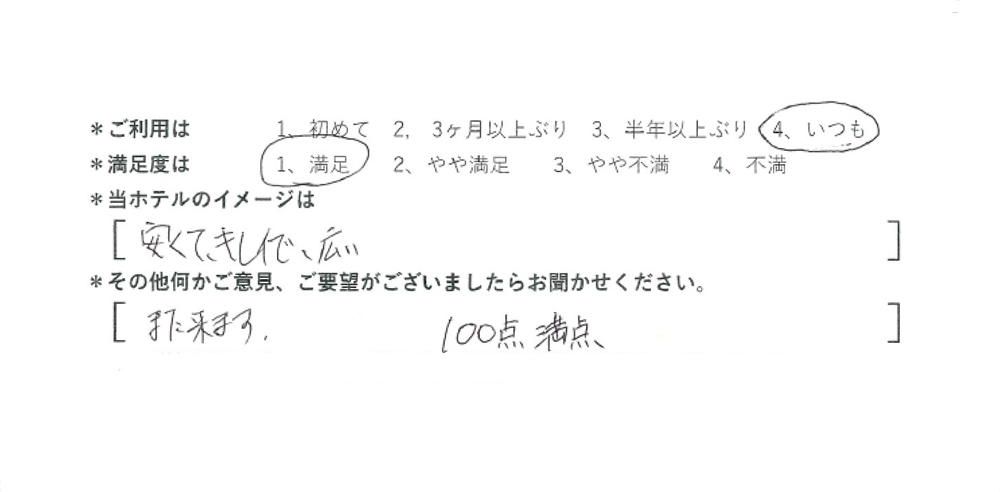 ＊ご利用は 1、初めて 2, 3ヶ月以上ぶり 3、半年以上ぶり 4、いつも
＊満足度は 1、満足 2、やや満足 3、やや不満 4、不満
＊当ホテルのイメージは
[ 安くて、きレイで、広い ]
＊その他何かご意見、ご要望がございましたらお聞かせください。
[ また来ます. 100点満点、 ]